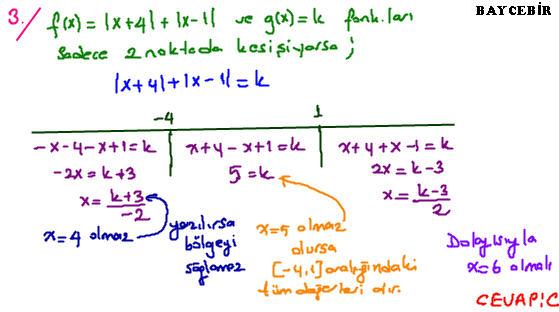 BAYCEBİR
3. f(x) = |x+4| + |x-1| ve g(x) = k fonk.ları
sadece 2 noktada kesişiyorsa ;
|x+4| + |x-1| = k
-4 1
-x-4-x+1=k x+4-x+1=k x+4+x-1=k
-2x=k+3 5=k 2x=k-3
x=\frac{k+3}{-2} x=\frac{k-3}{2}
x=4 olmaz yazılırsa bölgeyi sağlamaz
x=5 olmaz
olursa
[-4,1] aralığındaki
tüm değerleri alır.
Dolayısıyla
x=6 olmalı
CEVAP:C